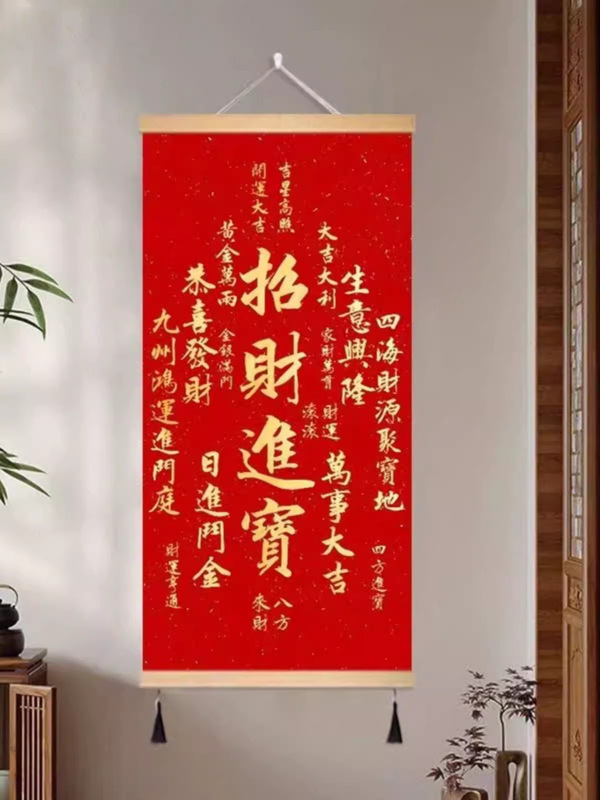 四海財源聚寶地
四方進寶
生意興隆
大吉大利
家財萬貫
財運
滾滾
萬事大吉
吉星高照
開運大吉
招財進寶
八方
來財
黃金萬兩
金銀滿門
恭喜發財
日進鬥金
九州鴻運進門庭
財運亨通